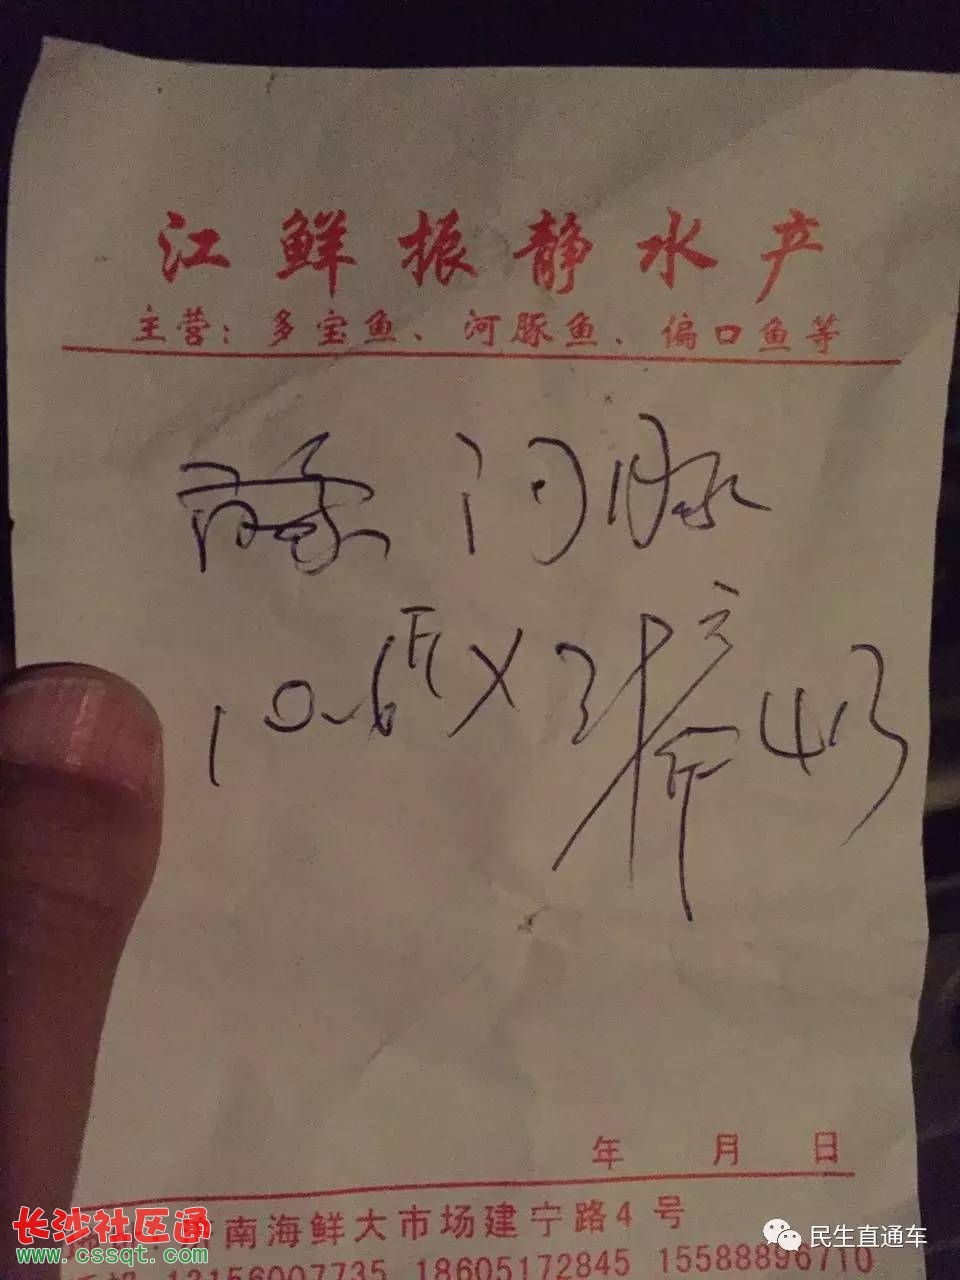 江鲜振静水产
主营：多宝鱼、河豚鱼、偏口鱼等
河豚
10.6斤X
年 月 日
南海鲜大市场建宁路4号
13156007735 18605172845 15588896710
长沙社区通
www.cssqt.com
民生直通车